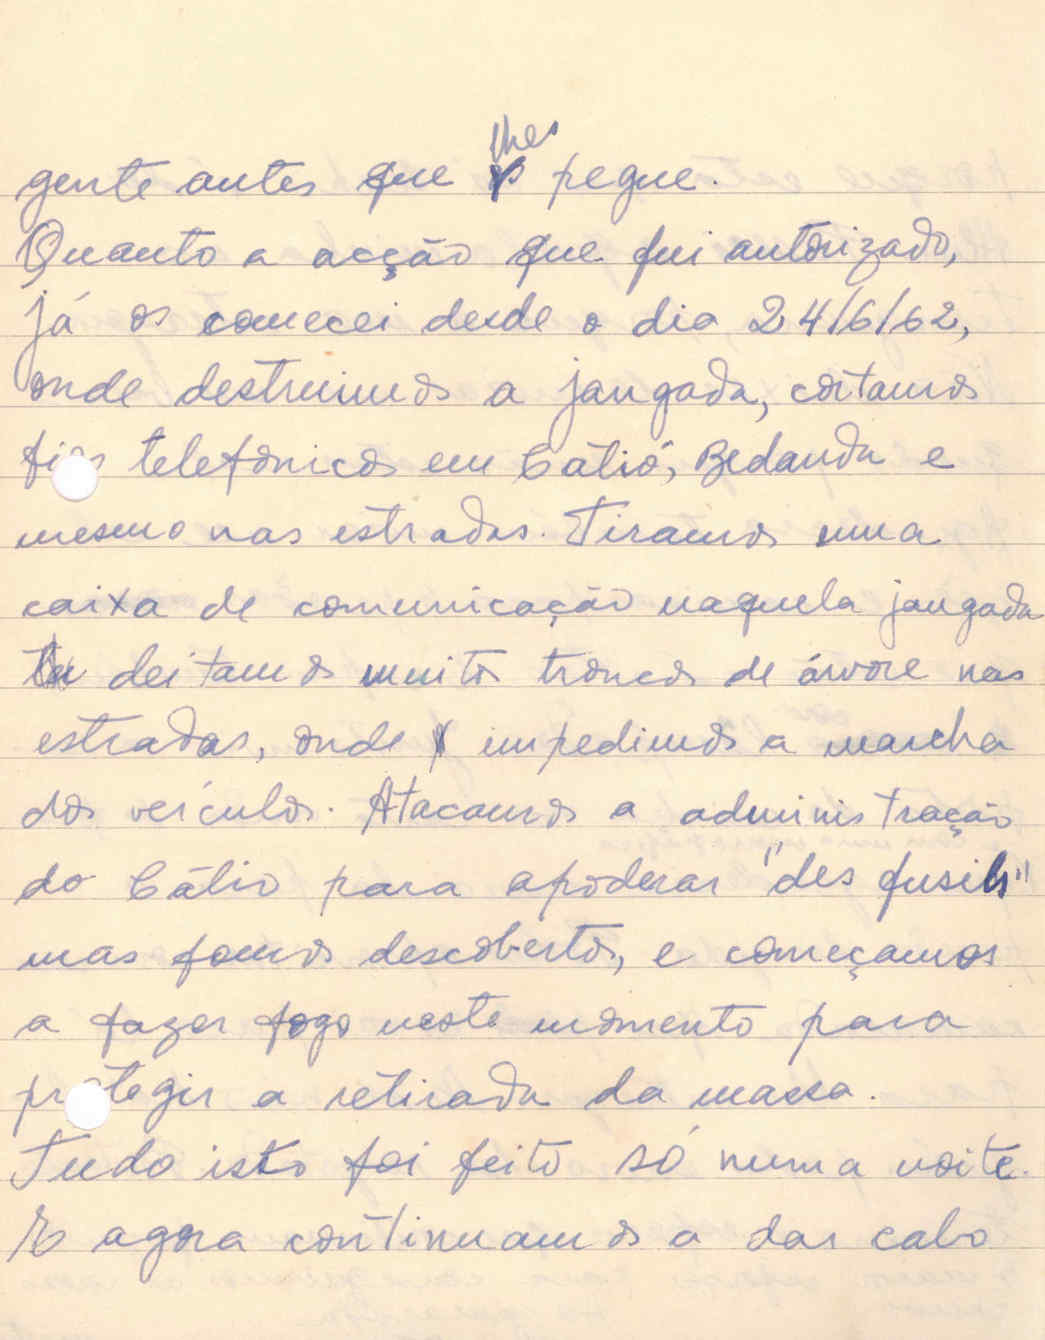 gente antes que lhes pegue.
Quanto a acção que fui autorizado,
já os comecei desde o dia 24/6/62,
onde destruimos a jangada, cortamos
fios telefonicos em Càtió, Bedanda e
mesmo nas estradas. Tiramos uma
caixa de comunicação naquela jangada
deitamos muitos troncos de árvore nas
estradas, onde impedimos a marcha
dos veículos. Atacamos a administração
do Càtió para apoderar "des fusils"
mas fomos descobertos, e começamos
a fazer fogo neste momento para
protegir a retirada da massa.
Tudo isto foi feito só numa noite.
E agora continuamos a dar cabo